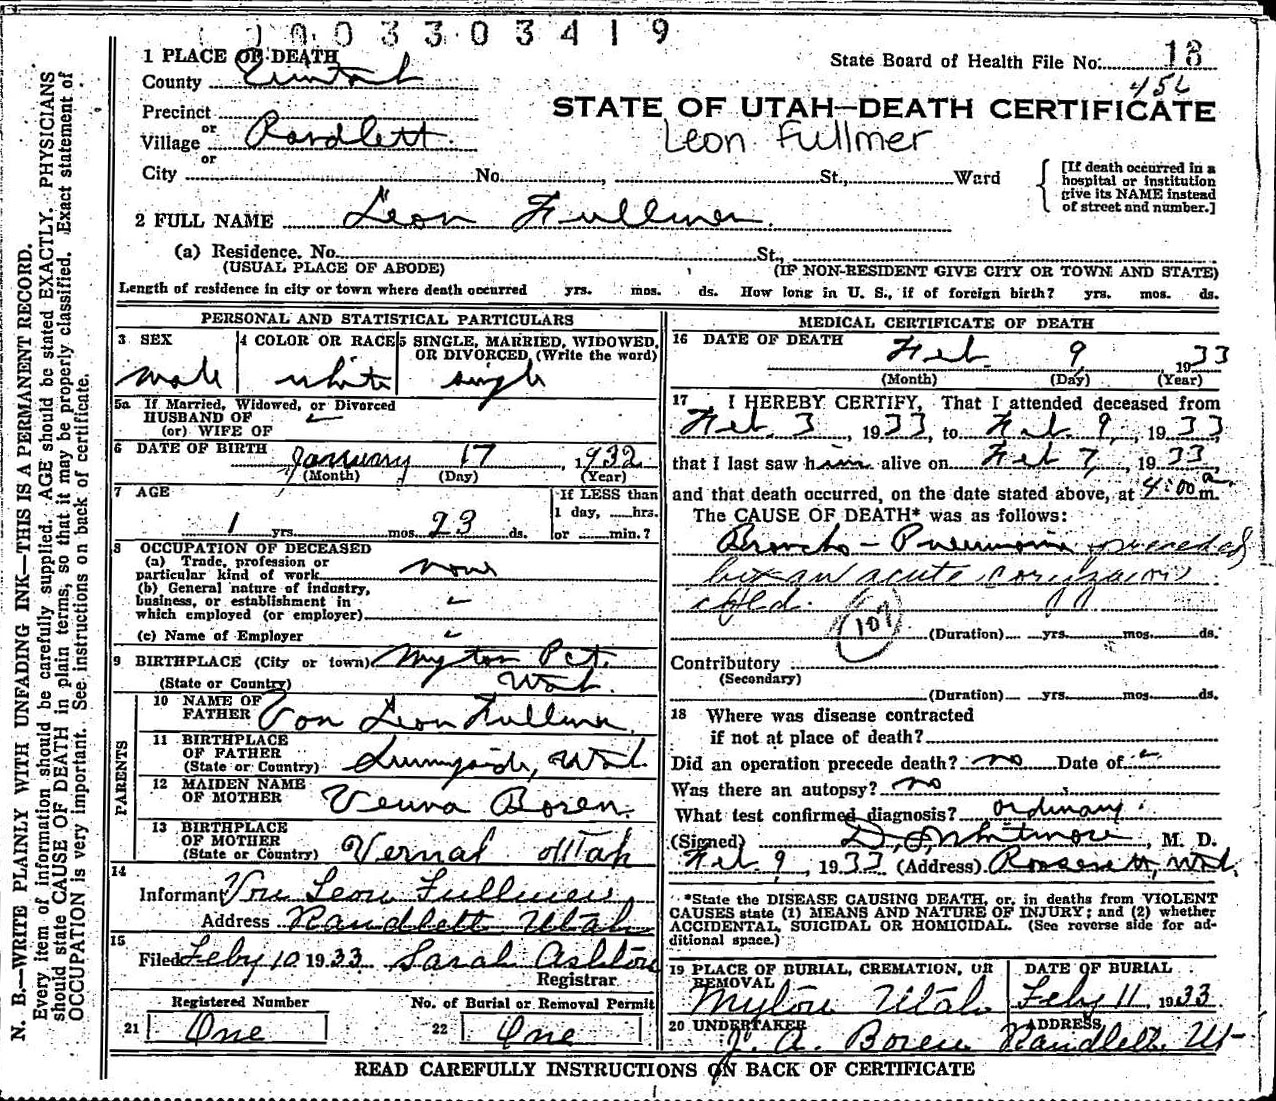 1003303419
1 PLACE OF DEATH
State Board of Health File No. 18
County Uintah
456
Precinct
STATE OF UTAH—DEATH CERTIFICATE
or
Village Randlett.
Leon Fullmer
or
City No. , St., Ward
[If death occurred in a hospital or institution give its NAME instead of street and number.]
2 FULL NAME Leon Fullmer.
(a) Residence. No. St.,
(USUAL PLACE OF ABODE) (IF NON-RESIDENT GIVE CITY OR TOWN AND STATE)
Length of residence in city or town where death occurred yrs. mos. ds. How long in U. S., if of foreign birth? yrs. mos. ds.
N. B.—WRITE PLAINLY WITH UNFADING INK—THIS IS A PERMANENT RECORD.
Every item of information should be carefully supplied. AGE should be stated EXACTLY. PHYSICIANS
should state CAUSE OF DEATH in plain terms, so that it may be properly classified. Exact statement of
OCCUPATION is very important. See instructions on back of certificate.
PERSONAL AND STATISTICAL PARTICULARS
3 SEX 4 COLOR OR RACE 5 SINGLE, MARRIED, WIDOWED,
OR DIVORCED (Write the word)
male white single
5a If Married, Widowed, or Divorced
HUSBAND OF
(or) WIFE OF
6 DATE OF BIRTH January 17, 1932
(Month) (Day) (Year)
7 AGE If LESS than
1 day, hrs.
1 yrs. mos. 23 ds. or min.?
8 OCCUPATION OF DECEASED
(a) Trade, profession or
particular kind of work none
(b) General nature of industry,
business, or establishment in
which employed (or employer)
(c) Name of Employer
9 BIRTHPLACE (City or town) Myton Pct.
(State or Country) Utah.
PARENTS
10 NAME OF
FATHER Von Leon Fullmer
11 BIRTHPLACE
OF FATHER
(State or Country) Sunnyside, Utah
12 MAIDEN NAME
OF MOTHER Venna Boren.
13 BIRTHPLACE
OF MOTHER
(State or Country) Vernal Utah
14
Informant Von Leon Fullmer
Address Randlett Utah
15
Filed Feby 10 1933 Sarah Ashton
Registrar
Registered Number No. of Burial or Removal Permit
21 One 22 One
MEDICAL CERTIFICATE OF DEATH
16 DATE OF DEATH
Feb. 9 1933
(Month) (Day) (Year)
17 I HEREBY CERTIFY, That I attended deceased from
Feb. 3, 1933, to Feb. 9, 1933,
that I last saw him alive on Feb 7, 1933,
and that death occurred, on the date stated above, at 4:00 a. m.
The CAUSE OF DEATH* was as follows:
Broncho-Pneumonia preceded
by an acute
cold.
107
(Duration) yrs. mos. ds.
Contributory
(Secondary)
(Duration) yrs. mos. ds.
18 Where was disease contracted
if not at place of death?
Did an operation precede death? no Date of
Was there an autopsy? no
What test confirmed diagnosis? ordinary.
(Signed) Whitmore, M. D.
Feb 9, 1933 (Address) Roosevelt, Utah.
*State the DISEASE CAUSING DEATH, or, in deaths from VIOLENT
CAUSES state (1) MEANS AND NATURE OF INJURY; and (2) whether
ACCIDENTAL, SUICIDAL OR HOMICIDAL. (See reverse side for ad-
ditional space.)
19 PLACE OF BURIAL, CREMATION, OR
REMOVAL
Myton Utah
DATE OF BURIAL
Feby 11 1933
20 UNDERTAKER ADDRESS
J. A. Boren Randlett Ut-
READ CAREFULLY INSTRUCTIONS ON BACK OF CERTIFICATE